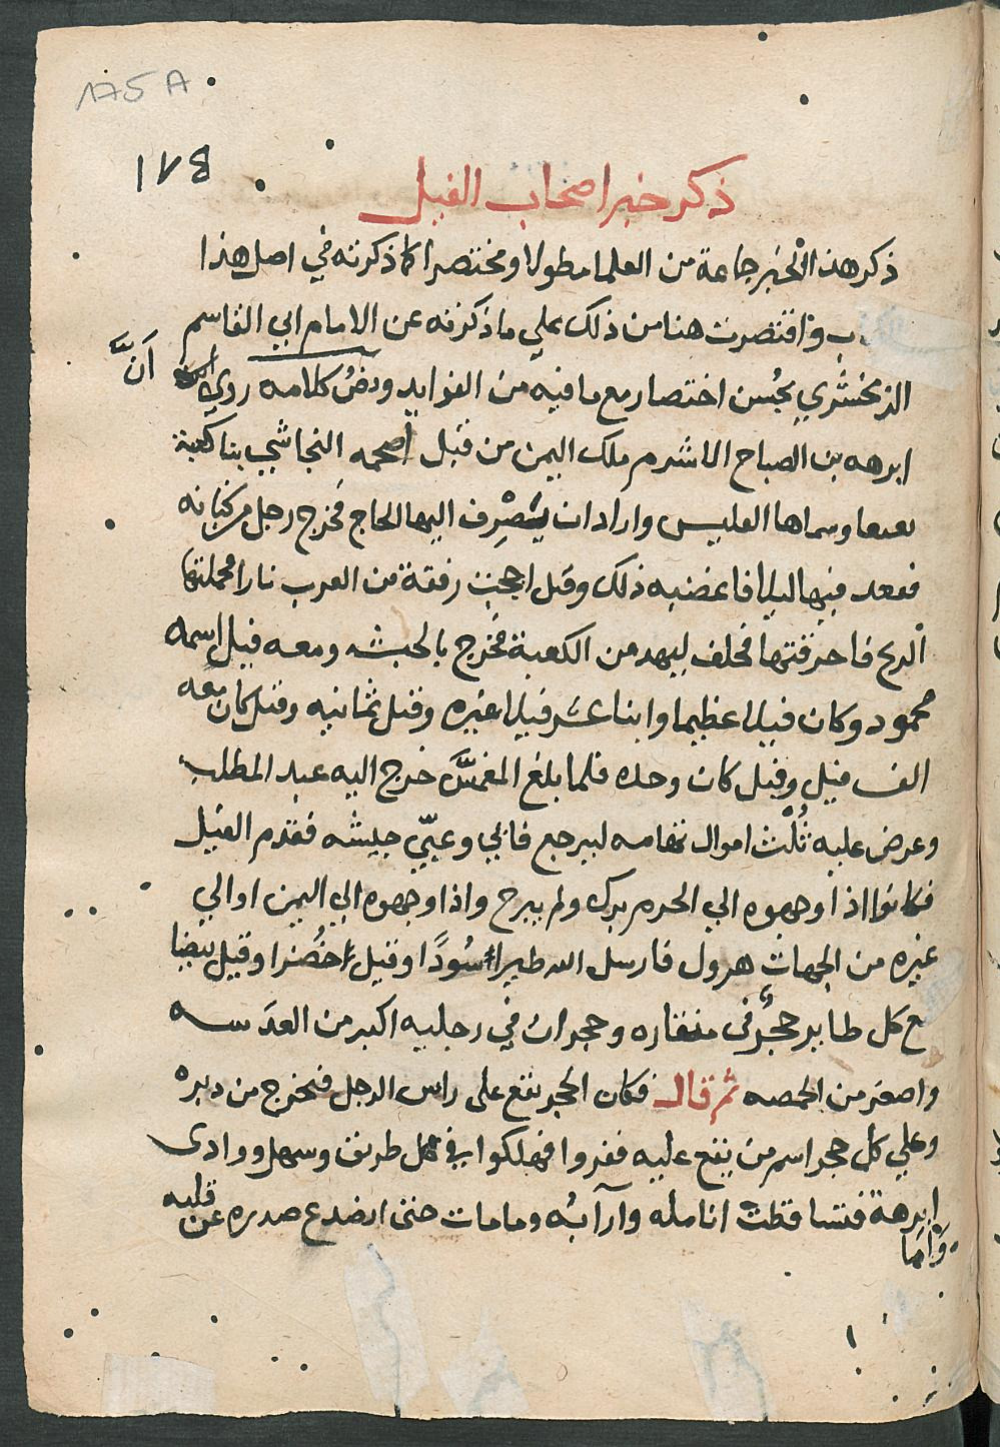 175 A
١٧٤
ذكر خبر اصحاب الفيل
ذكر هذا الخبر جماعة من العلما مطولا ومختصرا كما ذكرته في اصل هذا
ب واقتصرت هنا من ذلك علي ما ذكرته عن الامام ابي القاسم
الزمخشري بحُسن اختصار مع ما فيه من الفوايد ونصُ كلامه روي انَّ
ابرهه بن الصباح الاشرم ملك اليمن من قبل اصحمه النجاشي بنا كعبة
وسماها القليس واراد ان يَصْرِف اليها الحاج فخرج رجل من كنانه
فقعد فيها ليلا فاغضبه ذلك وقيل اججت رفقة من العرب نارا فحملتها
الريح فاحرقتها فحلف ليهدمن الكعبة فخرج بالحبشه ومعه فيل اسمه
محمود وكان فيلا عظيما واثنا عشر فيلا غيره وقيل ثمانيه وقيل كان معه
الف فيل وقيل كان وحده فلما بلغ المغمسَّ خرج اليه عبد المطلب
وعرض عليه ثُلُث اموال تهامه ليرجع فابي وعبّي جيشه فقدم الفيل
فكانوا اذا وجهوه الي الحرم برك ولم يبرح واذا وجهوه الي اليمن او الي
غيره من الجهات هرول فارسل الله طيرا سُودًا وقيل خضرا وقيل بيضا
مع كل طاير حجرٌ في منقاره وحجران في رجليه اكبر من العدَسه
واصغر من الحمصه ثم قال فكان الحجر يقع علي راس الرجل فيخرج من دبره
وعلي كل حجر اسم من يقع عليه ففروا فهلكوا في كل طريق وسهل ووادي
ابرهة فتساقطت انامله وآرآبُه وما مات حتي انصدع صدره عن قلبه
وَامَا